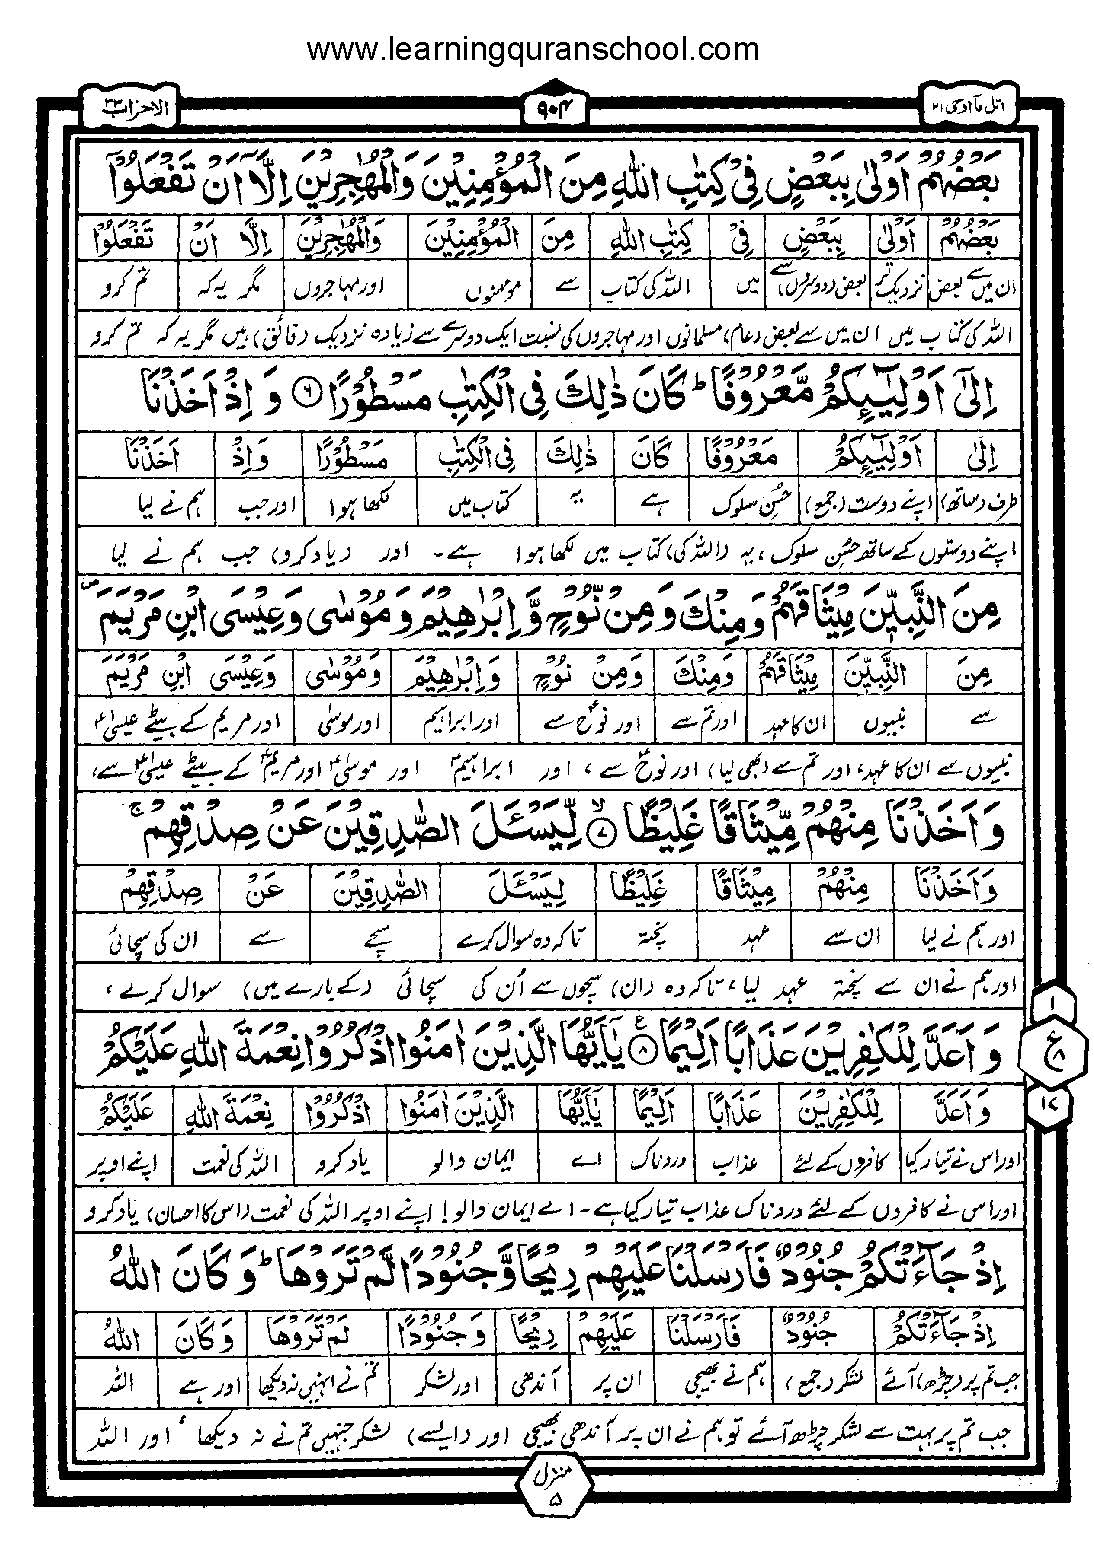 www.learningquranschool.com
اتل مآ اوحی ۲۱ ۹۰۴ الاحزاب ۳۳
بَعْضُهُمْ اَوْلٰى بِبَعْضٍ فِیْ كِتٰبِ اللّٰهِ مِنَ الْمُؤْمِنِیْنَ وَالْمُهٰجِرِیْنَ اِلَّاۤ اَنْ تَفْعَلُوْۤا
بَعْضُهُمْ اَوْلٰى بِبَعْضٍ فِیْ كِتٰبِ اللّٰهِ مِنَ الْمُؤْمِنِیْنَ وَالْمُهٰجِرِیْنَ اِلَّاۤ اَنْ تَفْعَلُوْۤا
ان میں سے بعض نزدیک تر بعض (دوسروں) سے میں اللہ کی کتاب سے مومنوں اور مہاجروں مگر یہ کہ تم کرو
اللہ کی کتاب میں ان میں سے بعض (عام) مسلمانوں اور مہاجروں کی نسبت ایک دوسرے سے زیادہ نزدیک (فائق) ہیں مگر یہ کہ تم کرو
اِلٰۤى اَوْلِیٰٓئِكُمْ مَّعْرُوْفًا ؕ كَانَ ذٰلِكَ فِی الْكِتٰبِ مَسْطُوْرًا ۶ وَ اِذْ اَخَذْنَا
اِلٰۤى اَوْلِیٰٓئِكُمْ مَعْرُوْفًا كَانَ ذٰلِكَ فِی الْكِتٰبِ مَسْطُوْرًا وَاِذْ اَخَذْنَا
طرف (ساتھ) اپنے دوست (جمع) حسنِ سلوک ہے یہ کتاب میں لکھا ہوا اور جب ہم نے لیا
اپنے دوستوں کے ساتھ حسنِ سلوک، یہ (اللہ کی) کتاب میں لکھا ہوا ہے۔ اور (یاد کرو) جب ہم نے لیا
مِنَ النَّبِیّٖنَ مِیْثَاقَهُمْ وَمِنْكَ وَمِنْ نُّوْحٍ وَّاِبْرٰهِیْمَ وَمُوْسٰى وَعِیْسَى ابْنِ مَرْیَمَ ۪
مِنَ النَّبِیّٖنَ مِیْثَاقَهُمْ وَمِنْكَ وَمِنْ نُوْحٍ وَاِبْرٰهِیْمَ وَمُوْسٰى وَعِیْسَى ابْنِ مَرْیَمَ
سے نبیوں ان کا عہد اور تم سے اور نوحؑ سے اور ابراہیم اور موسیٰ اور مریم کے بیٹے عیسیٰؑ
نبیوں سے ان کا عہد، اور تم سے (بھی لیا) اور نوحؑ سے، اور ابراہیمؑ اور موسیٰؑ اور مریمؑ کے بیٹے عیسیٰؑ سے،
وَاَخَذْنَا مِنْهُمْ مِّیْثَاقًا غَلِیْظًا ۙ۷ لِّیَسْـَٔلَ الصّٰدِقِیْنَ عَنْ صِدْقِهِمْ ۚ
وَاَخَذْنَا مِنْهُمْ مِیْثَاقًا غَلِیْظًا لِیَسْـَٔلَ الصّٰدِقِیْنَ عَنْ صِدْقِهِمْ
اور ہم نے لیا ان سے عہد پختہ تاکہ وہ سوال کرے سچے سے ان کی سچائی
اور ہم نے ان سے پختہ عہد لیا، تاکہ وہ (ان) سچوں سے اُن کی سچائی (کے بارے میں) سوال کرے،
وَاَعَدَّ لِلْكٰفِرِیْنَ عَذَابًا اَلِیْمًا ۸ ع یٰۤاَیُّهَا الَّذِیْنَ اٰمَنُوا اذْكُرُوْا نِعْمَةَ اللّٰهِ عَلَیْكُمْ
۱
ع
۸
۱۷
وَاَعَدَّ لِلْكٰفِرِیْنَ عَذَابًا اَلِیْمًا یٰۤاَیُّهَا الَّذِیْنَ اٰمَنُوا اذْكُرُوْا نِعْمَةَ اللّٰهِ عَلَیْكُمْ
اور اس نے تیار کیا کافروں کے لئے عذاب دردناک اے ایمان والو یاد کرو اللہ کی نعمت اپنے اوپر
اور اس نے کافروں کے لئے دردناک عذاب تیار کیا ہے۔ اے ایمان والو! اپنے اوپر اللہ کی نعمت (اس کا احسان) یاد کرو
اِذْ جَآءَتْكُمْ جُنُوْدٌ فَاَرْسَلْنَا عَلَیْهِمْ رِیْحًا وَّجُنُوْدًا لَّمْ تَرَوْهَا ؕ وَكَانَ اللّٰهُ
اِذْ جَآءَتْكُمْ جُنُوْدٌ فَاَرْسَلْنَا عَلَیْهِمْ رِیْحًا وَجُنُوْدًا لَمْ تَرَوْهَا وَكَانَ اللّٰهُ
جب تم پر (چڑھ) آئے لشکر (جمع) ہم نے بھیجی ان پر آندھی اور لشکر تم نے انہیں نہ دیکھا اور ہے اللہ
جب تم پر بہت سے لشکر چڑھ آئے تو ہم نے ان پر آندھی بھیجی اور (ایسے) لشکر جنہیں تم نے نہ دیکھا، اور اللہ
منزل
۵